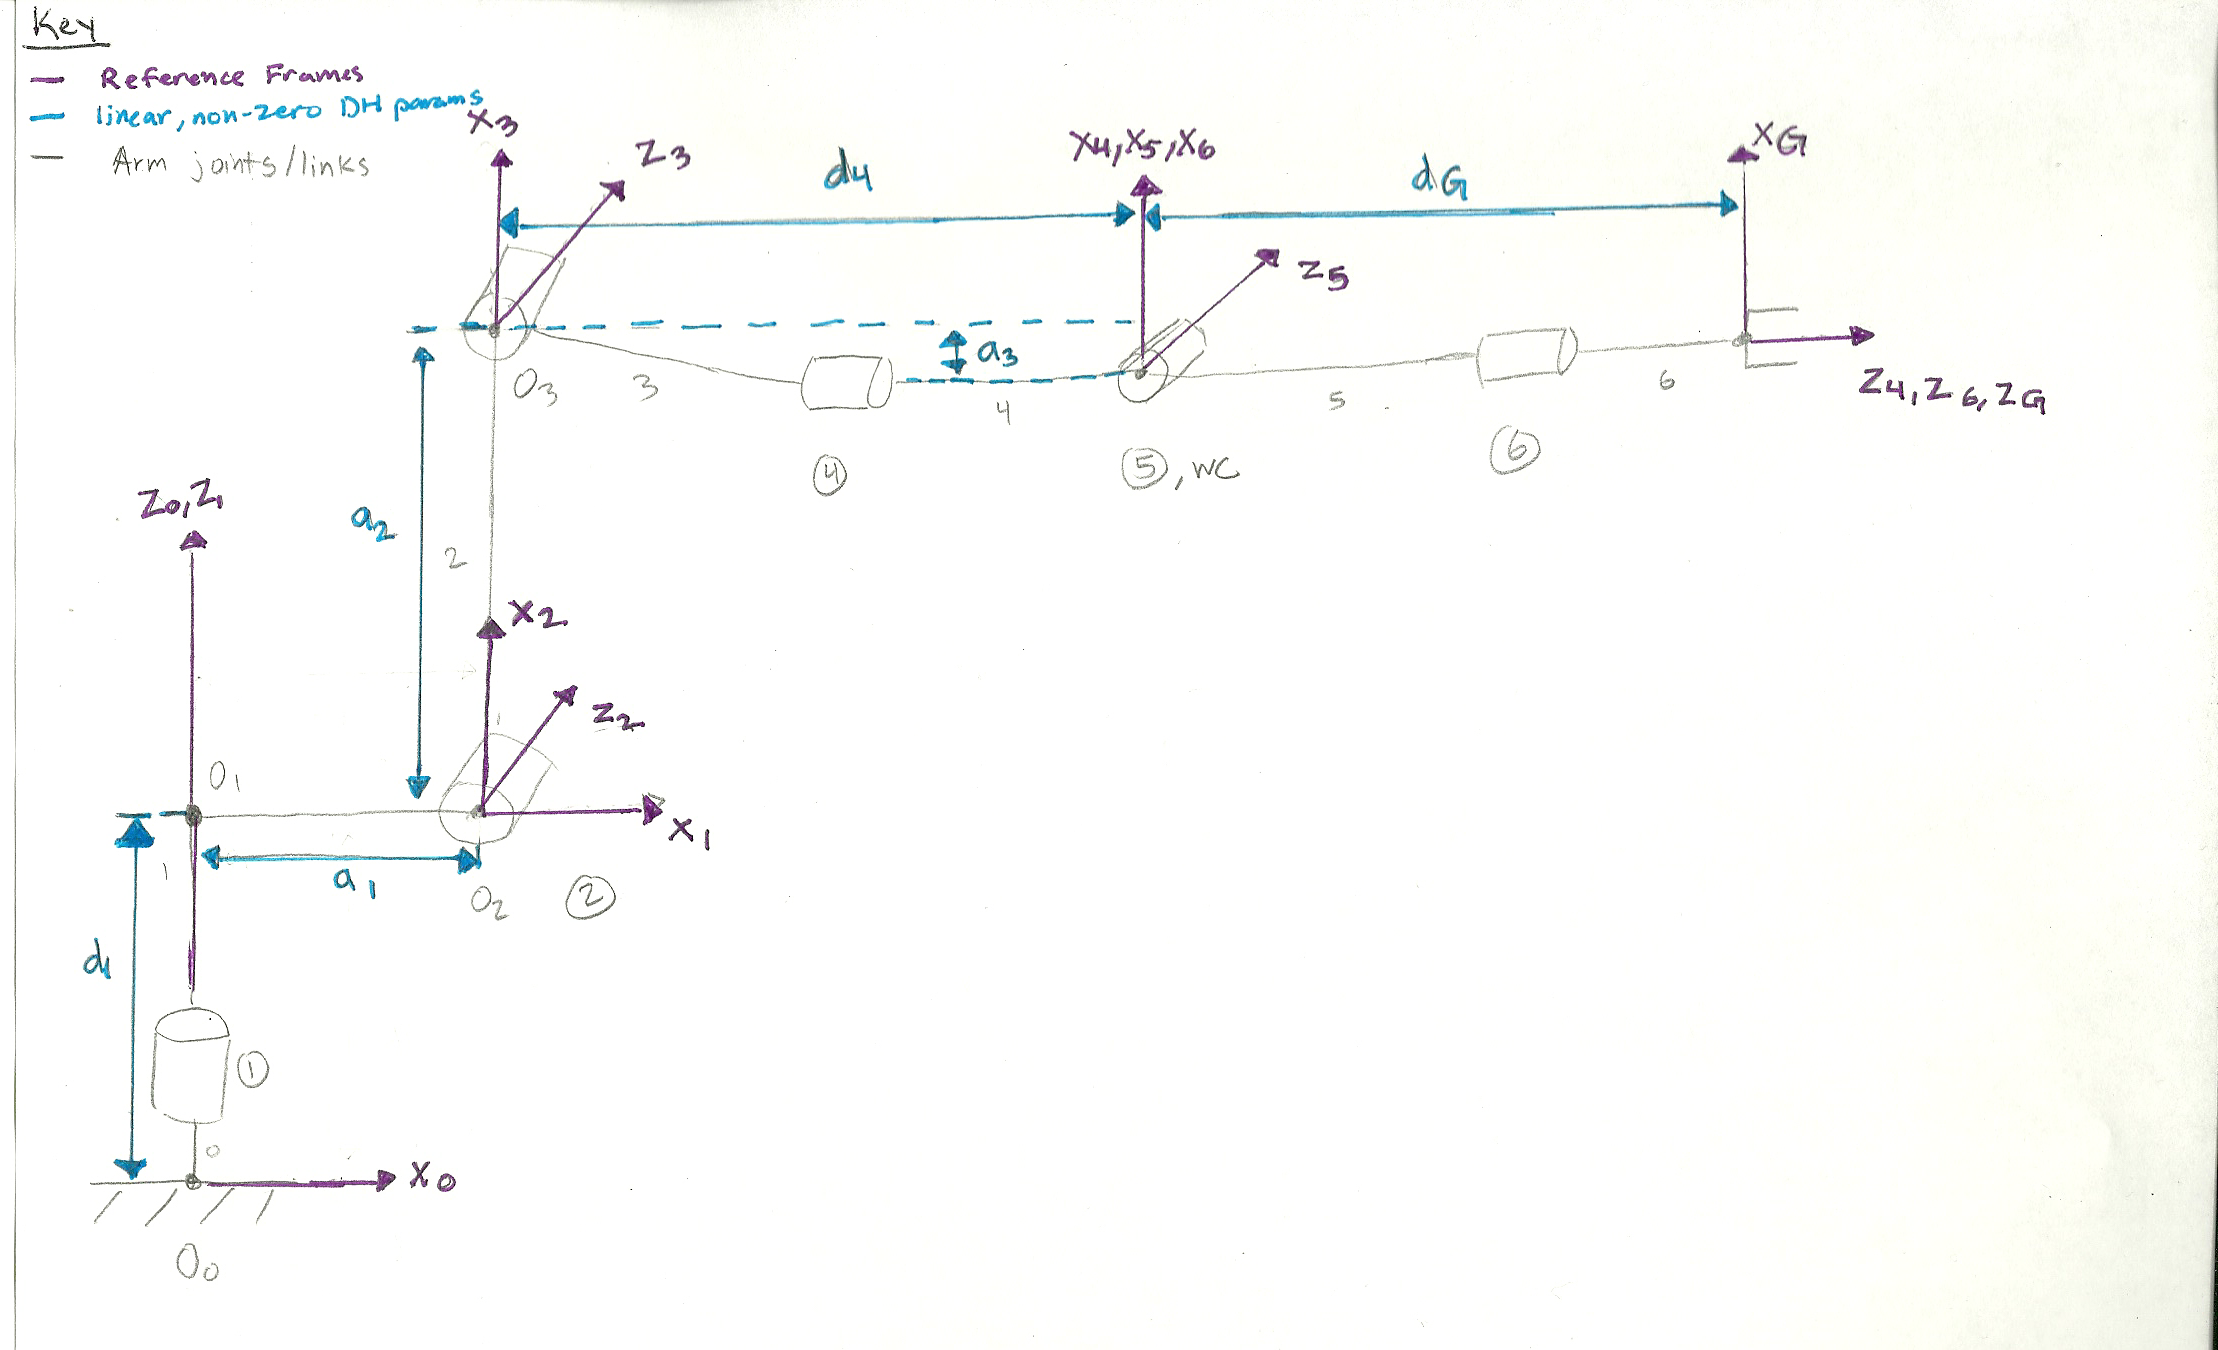 Key
Reference Frames
linear, non-zero DH params
Arm joints/links
X3
Z3
d4
X4,X5,X6
dG
XG
Z5
a3
O3
3
4
5
6
Z4,Z6,ZG
4
5, WC
6
Z0,Z1
a2
2
X2
Z2
O1
X1
1
a1
O2
2
d1
1
0
X0
O0